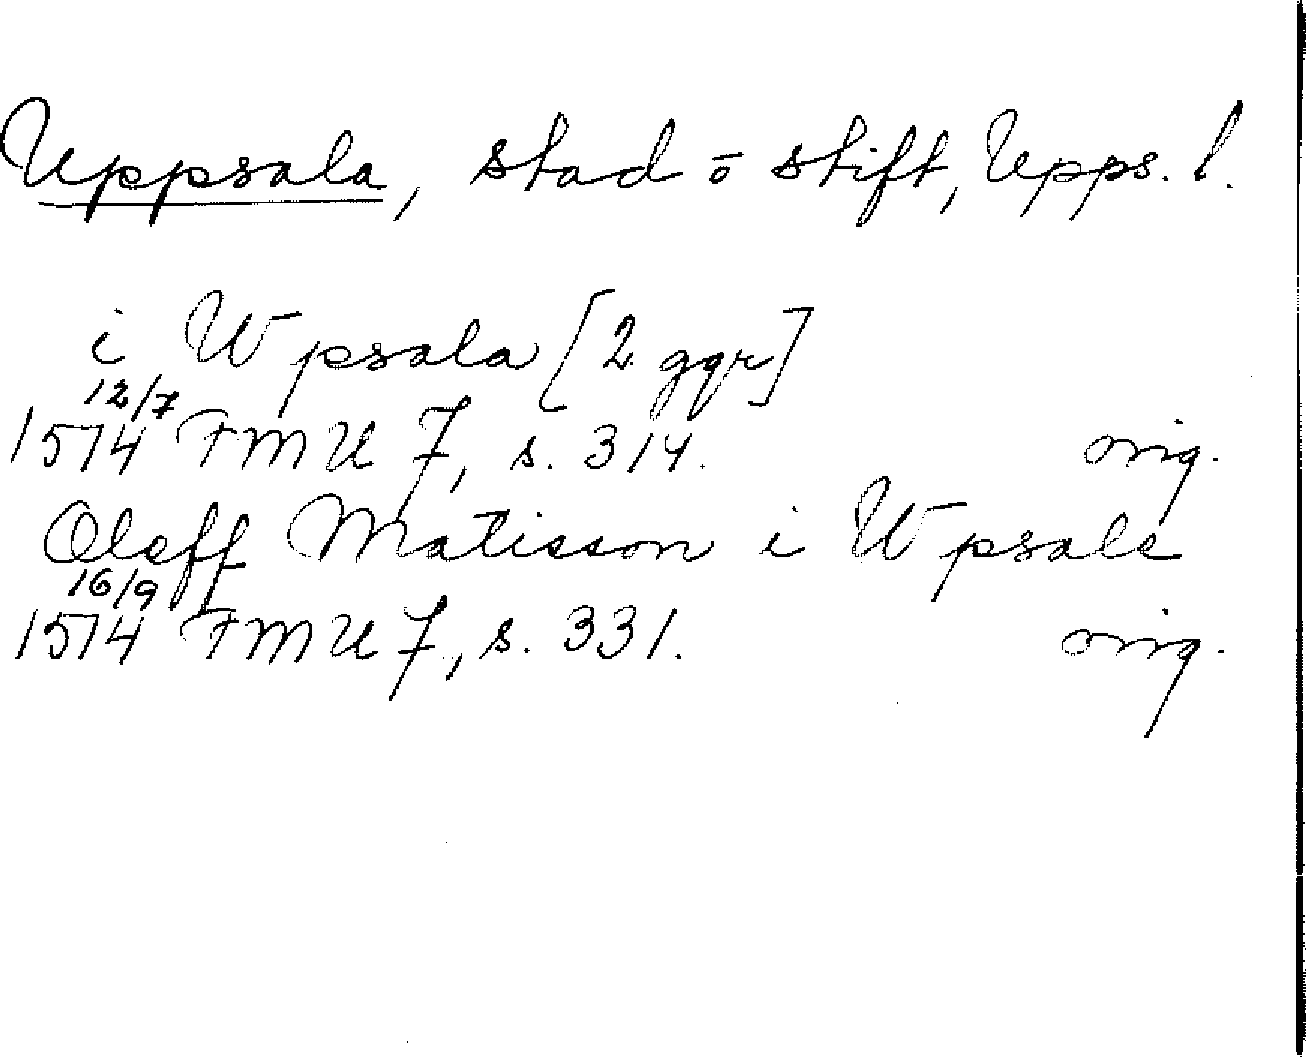 Uppsala, stad o stift, Upps. l.
i Wpsala [2 ggr]
12/7
1514 FMU 7, s. 314. orig.
Oleff Matisson i Wpsale
16/9
1514 FMU 7, s. 331. orig.